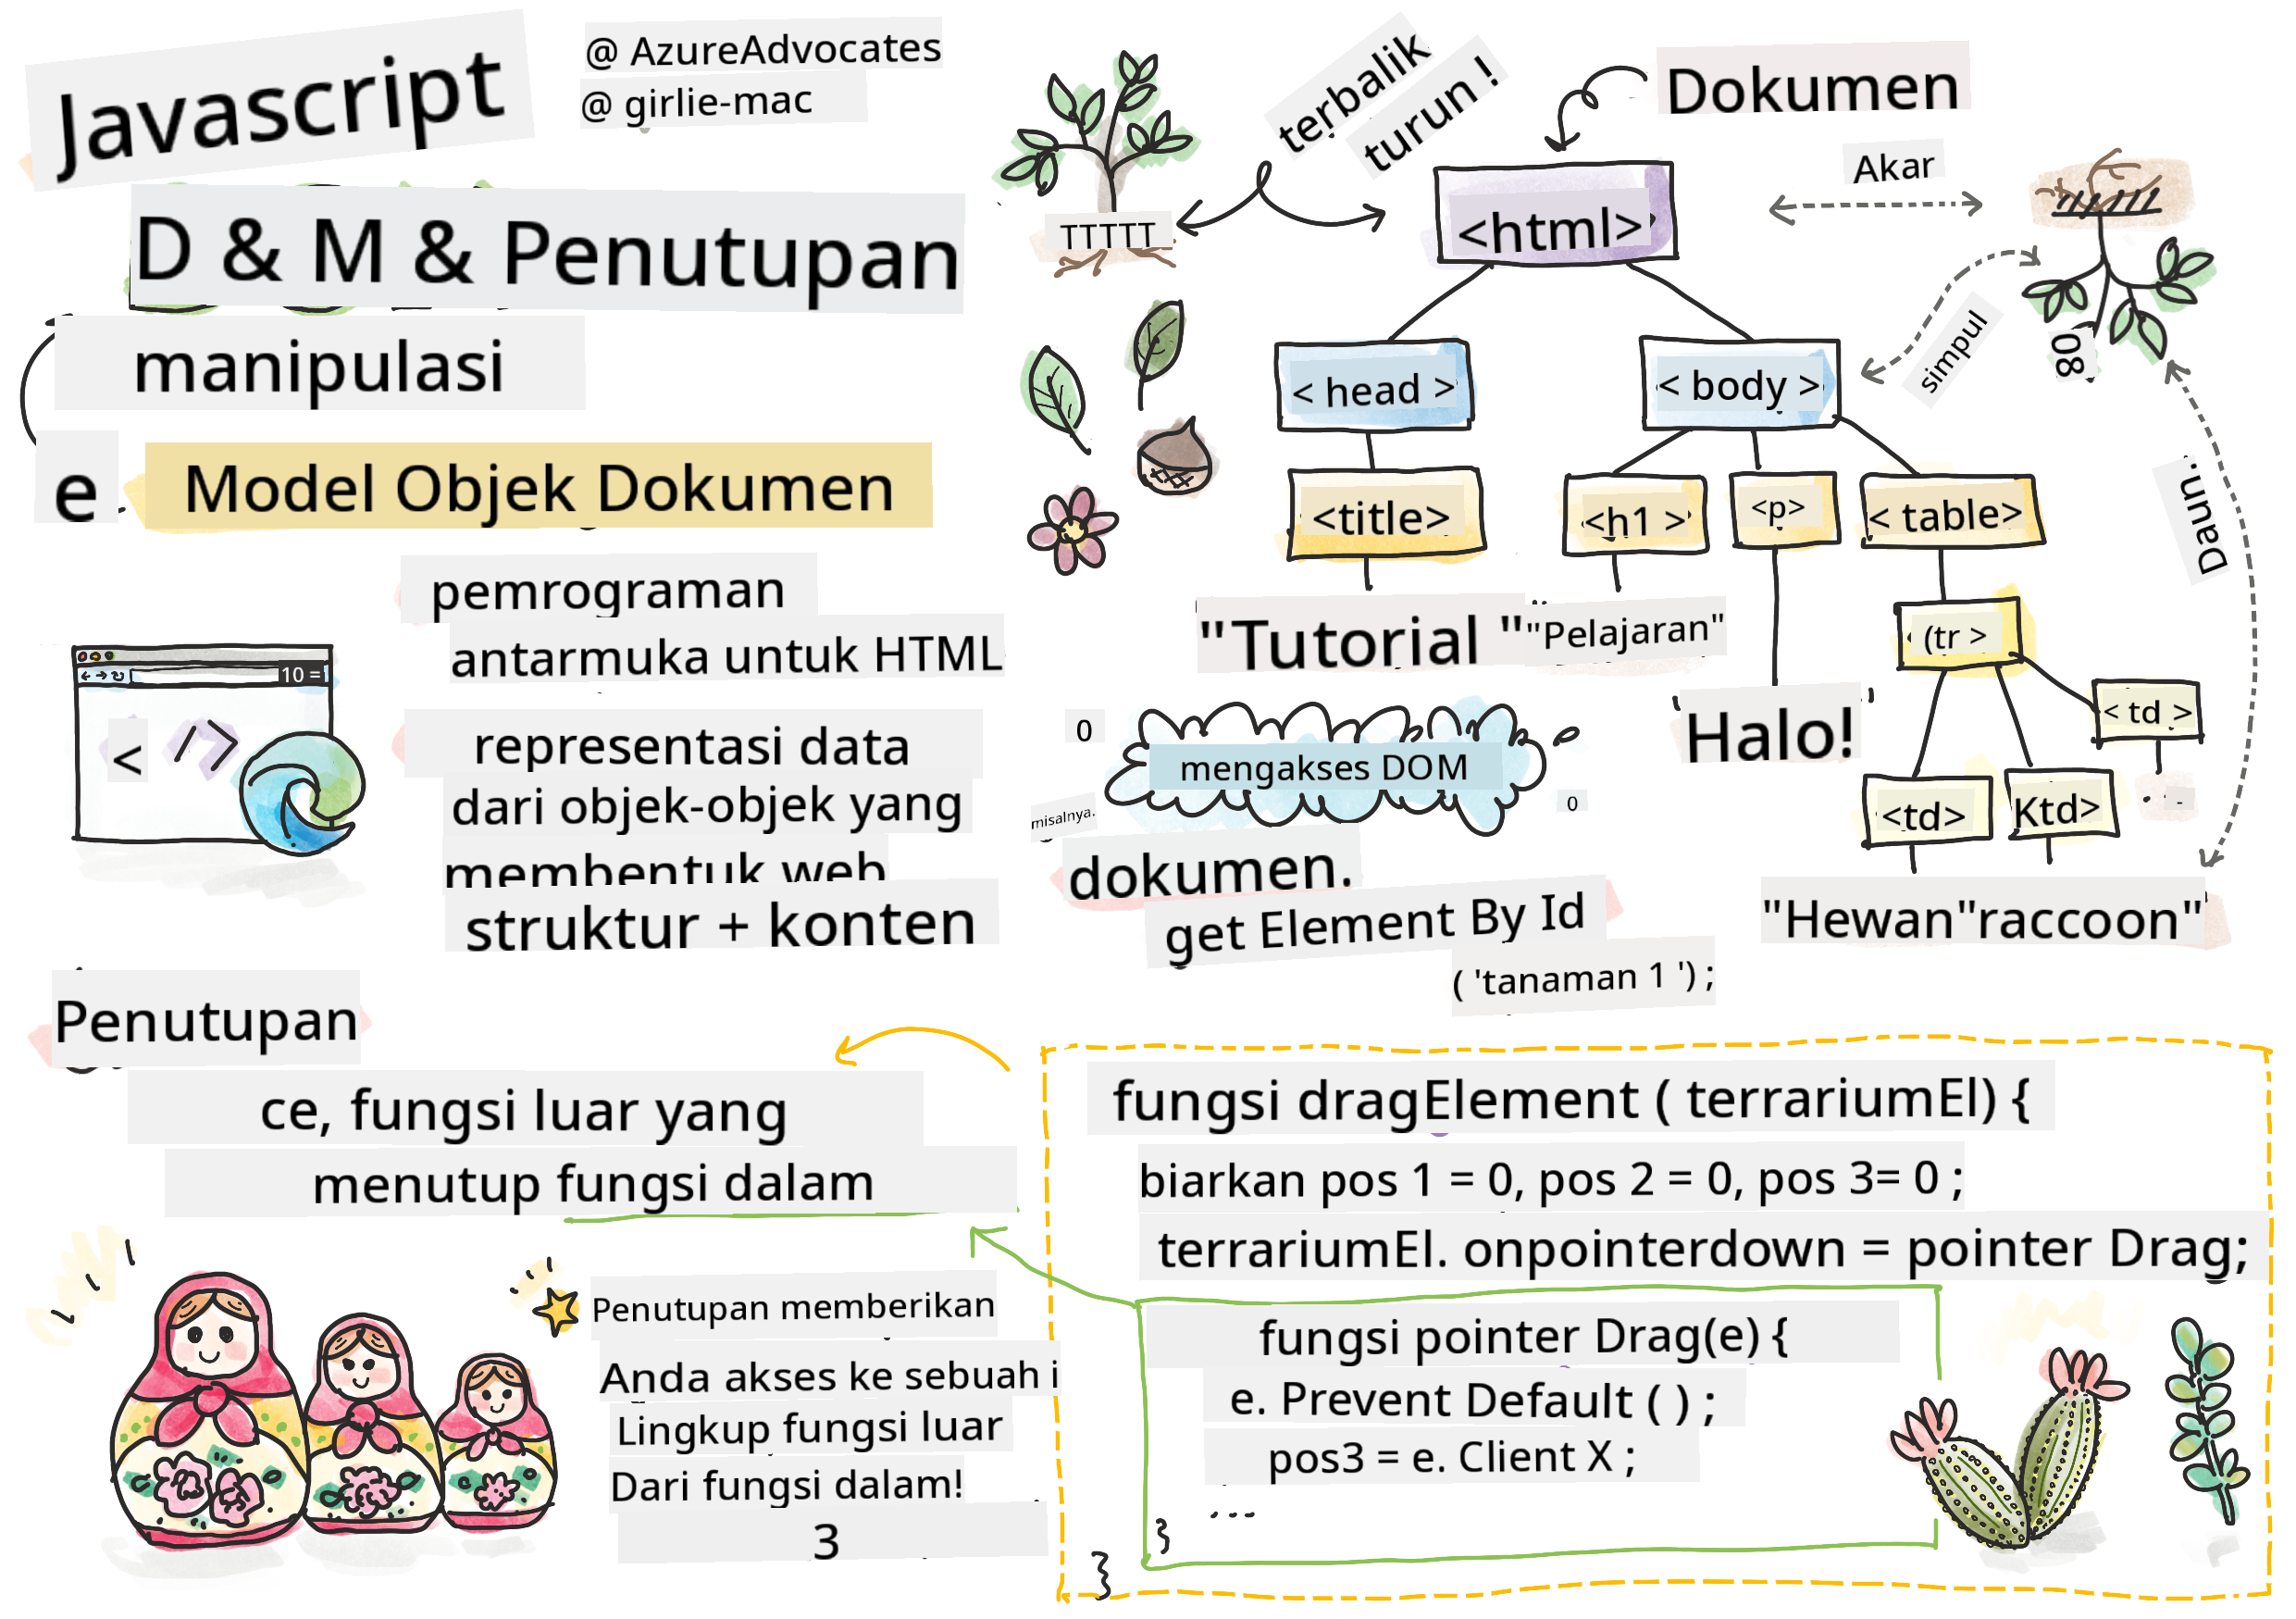 Javascript
@ AzureAdvocates
@ girlie-mac
D & M & Penutupan
manipulasi
e
Model Objek Dokumen
pemrograman
antarmuka untuk HTML
10 =
< />
representasi data
dari objek-objek yang
membentuk web
struktur + konten
terbalik
turun !
Dokumen
TTTTT
Akar
simpul
08
Daun.
<html>
< head >
< body >
<title>
<h1 >
<p>
< table>
"Tutorial "
"Pelajaran"
(tr >
"Halo!"
< td >
<td>
Ktd>
"Hewan"raccoon"
0
mengakses DOM
0
misalnya.
dokumen.
get Element By Id
( 'tanaman 1 ') ;
Penutupan
ce, fungsi luar yang
menutup fungsi dalam
Penutupan memberikan
Anda akses ke sebuah i
Lingkup fungsi luar
Dari fungsi dalam!
3
fungsi dragElement ( terrariumEl) {
biarkan pos 1 = 0, pos 2 = 0, pos 3= 0 ;
terrariumEl. onpointerdown = pointer Drag;
fungsi pointer Drag(e) {
e. Prevent Default ( ) ;
pos3 = e. Client X ;
...
}
}